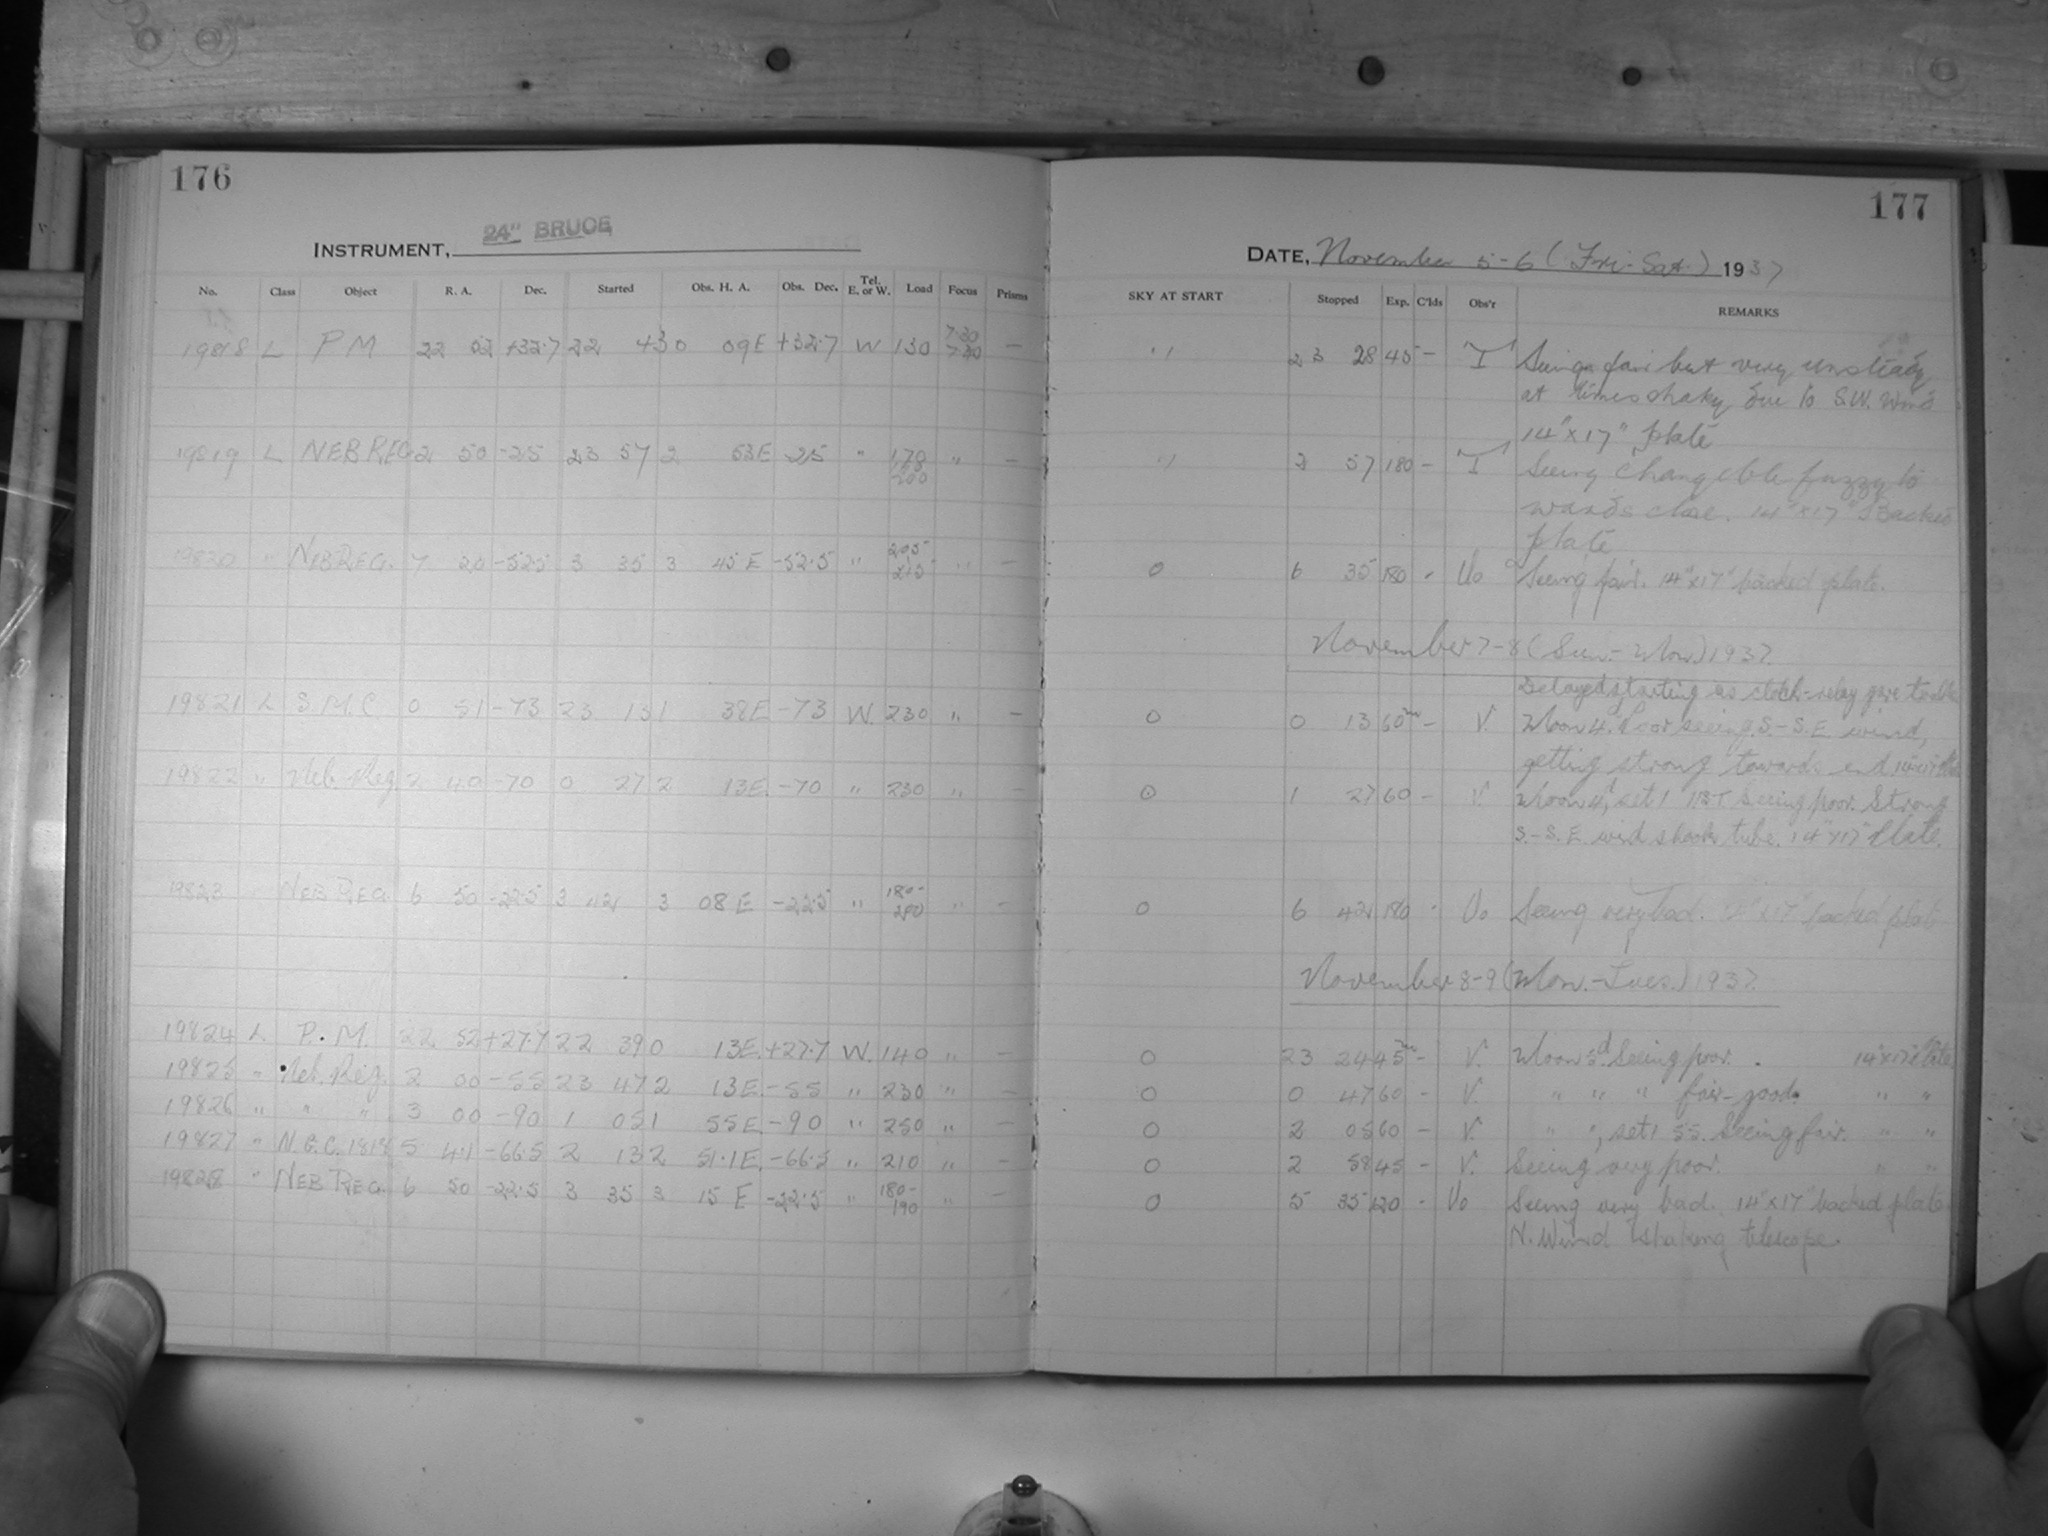 176
INSTRUMENT, 24" BRUCE
No. Class Object R. A. Dec. Started Obs. H. A. Obs. Dec. Tel. E. or W. Load Focus Prisms
19818 L P M 22 02 +32.7 22 43 0 09 E +32.7 W 130 7.30 —
19819 L NEB REG 2 50 -25 23 57 2 53 E 25 " 170 200 " —
19820 " NEB REG. 7 20 -52.5 3 35 3 45 E -52.5 " 205 215 " —
19821 L S.M.C 0 51 -73 23 13 1 38 E -73 W. 230 " —
19822 " Neb. Reg. 2 40 -70 0 27 2 13 E. -70 " 230 " —
19823 NEB REG. 6 50 -22.5 3 42 3 08 E -22.5 " 180- " —
19824 L P. M. 22 52 +27.7 22 39 0 13 E. +27.7 W. 140 " —
19825 " Neb. Reg. 2 00 -55 23 47 2 13 E. -55 " 230 " —
19826 " " " 3 00 -90 1 05 1 55 E -90 " 250 " —
19827 " N.G.C. 1818 5 4.1 -66.5 2 13 2 51.1 E. -66.5 " 210 " —
19828 " NEB REG. 6 50 -22.5 3 35 3 15 E -22.5 " 180-190 " —
177
DATE, November 5-6 (Fri-Sat.) 1937
SKY AT START Stopped Exp. C'lds Obs'r REMARKS
" 23 28 45 — "T" Seeing fair but very unsteady
at times shaky due to S.W. Wind
14" x 17" plate
" 2 57 180 — "T" Seeing changeable fuzzy to
wards close. 14" x 17" Backed
plate
0 6 35 180 - Uo Seeing fair. 14" x 17" backed plate.
November 7-8 (Sun.-Mon) 1937.
Delayed starting as clock-relay gave trouble
0 0 13 60m — V. Moon 4d. Poor seeing. S.-S.E. wind,
getting strong towards end 14"x17" Plate
0 1 27 60 — V. Moon 4d, set 1 Seeing poor. Strong
S.-S.E. wind shook tube. 14" x 17" Plate.
0 6 42 180 - Uo Seeing very bad. 14" x 17" backed plate
November 8-9 (Mon.-Tues.) 1937.
0 23 24 45m — V. Moon 5d. Seeing poor. 14"x17" Plate.
0 0 47 60 — V. " " " fair-good. " "
0 2 05 60 — V. " ", set 1 55. Seeing fair. " "
0 2 58 45 — V. Seeing very poor. " "
0 5 35 120 - Uo Seeing very bad. 14" x 17" backed plate.
N. Wind shaking telescope.